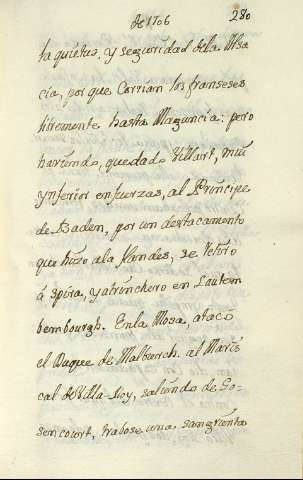 de 1706
280
ta quietus, y seguridad dela Alsa
cia, por que Corrian los franseses
liremente hasta Maguncia: pero
haviendo, quedado Villart, mui
ynferior enfuerzas, al Principe
de Baden, por un destacamento
que hizo ala flandes, se retiro
á Spira, y atrincheró en Lautem
bembourgh. Enla Mosa, atacó
el Duque de Malberch. al Maris
cal de Villa-Roy, saliendo de Go-
sencourt, trabose una sangrienta